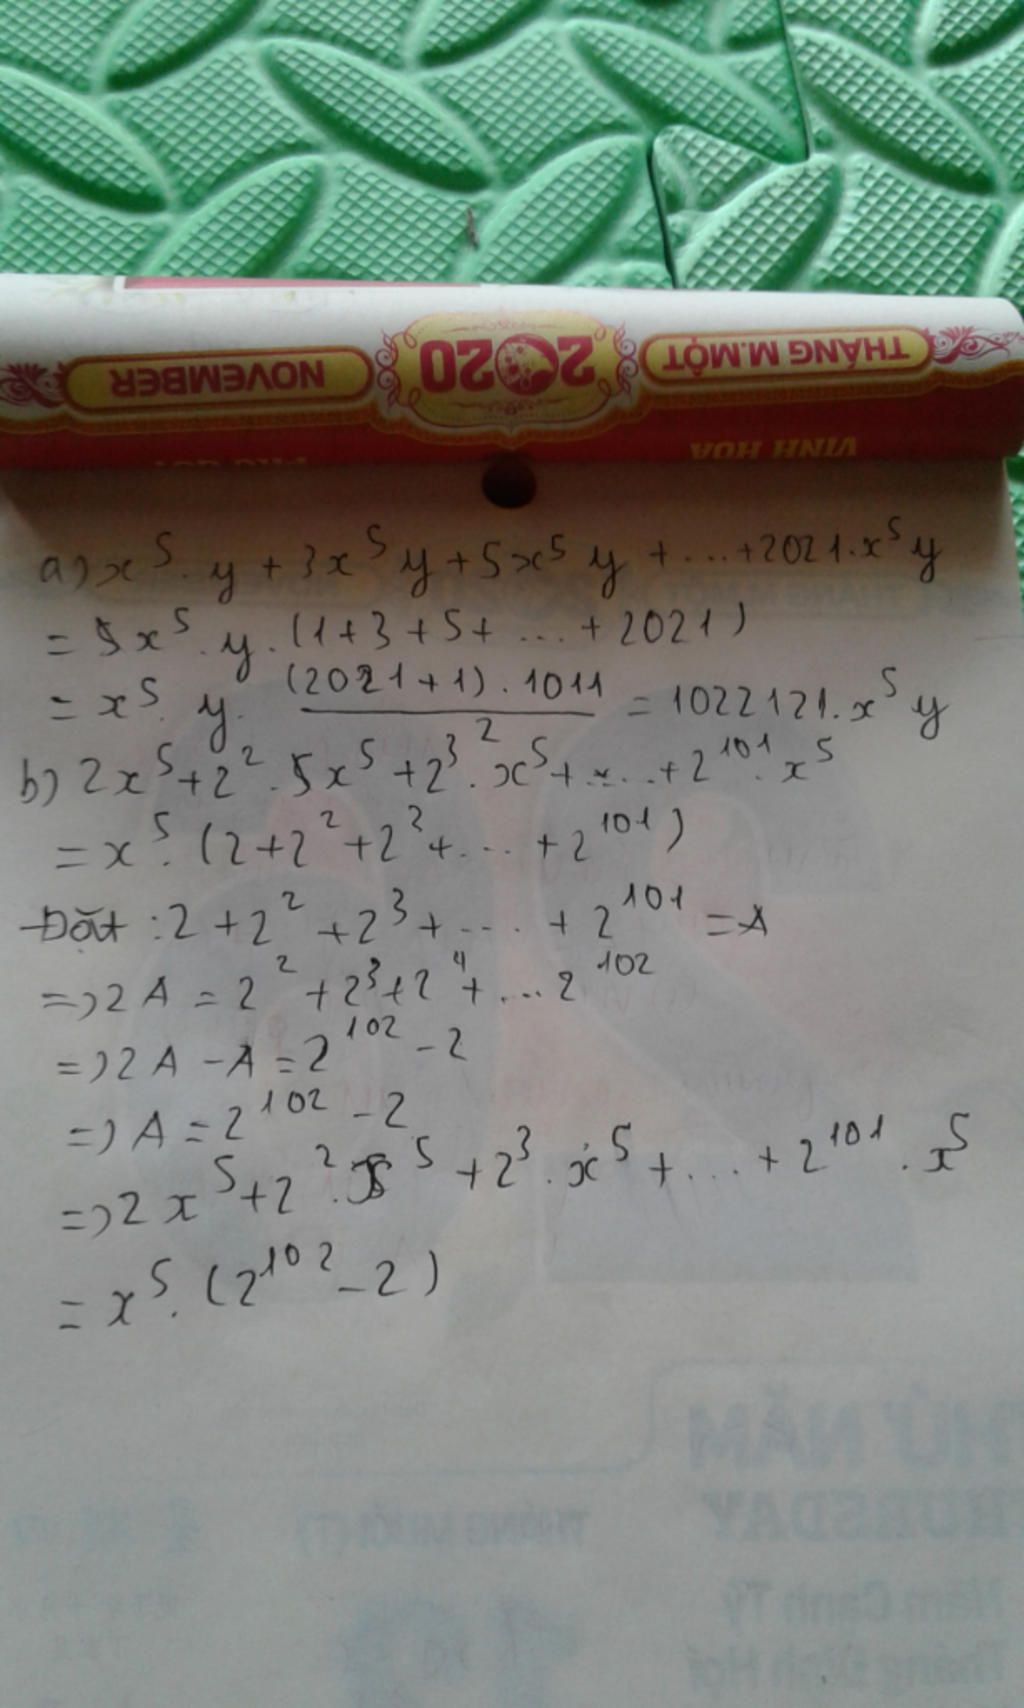 NOVEMBER 2020 THÁNG M.MỘT
VINH HOA
a) x⁵.y + 3x⁵y + 5x⁵y + ... + 2021.x⁵y
= 5x⁵.y.(1+3+5+ ... + 2021)
= x⁵.y. (2021+1).1011 / 2 = 1022121.x⁵y
b) 2x⁵ + 2².5x⁵ + 2³.x⁵ + ... + 2¹⁰¹.x⁵
= x⁵.(2+2²+2³+ ... + 2¹⁰¹)
Đặt : 2 + 2² + 2³ + ... + 2¹⁰¹ = A
=> 2A = 2² + 2³ + 2⁴ + ... 2¹⁰²
=> 2A - A = 2¹⁰² - 2
=> A = 2¹⁰² - 2
=> 2x⁵ + 2².x⁵ + 2³.x⁵ + ... + 2¹⁰¹.x⁵
= x⁵.(2¹⁰² - 2)
THỨ NĂM
THURSDAY
Năm Canh Tý
Tháng Đinh Hợi